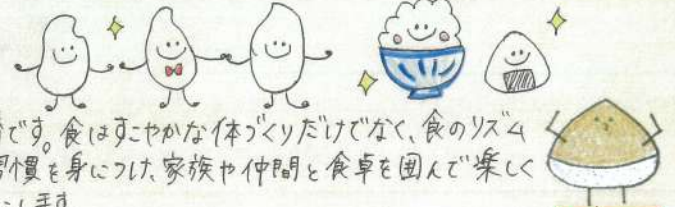 です。食はすこやかな体づくりだけでなく、食のリズム
習慣を身につけ、家族や仲間と食卓を囲んで楽しく
します